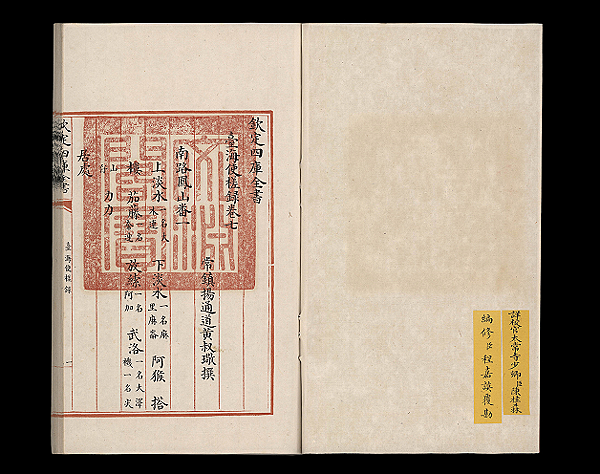 詳校官太常寺少卿臣陳桂森
編修臣程嘉謨覆勘
欽定四庫全書
臺海使槎録卷七
常鎮揚通道黃叔璥撰
南路鳳山番一
上淡水一名大木連 下淡水一名麻里麻崙 阿猴 搭
樓 茄藤一名奢連 放縤一名阿加 武洛一名大澤機一名尖
山仔 力力
居處
欽定四庫全書
臺海使槎録
文淵閣寶